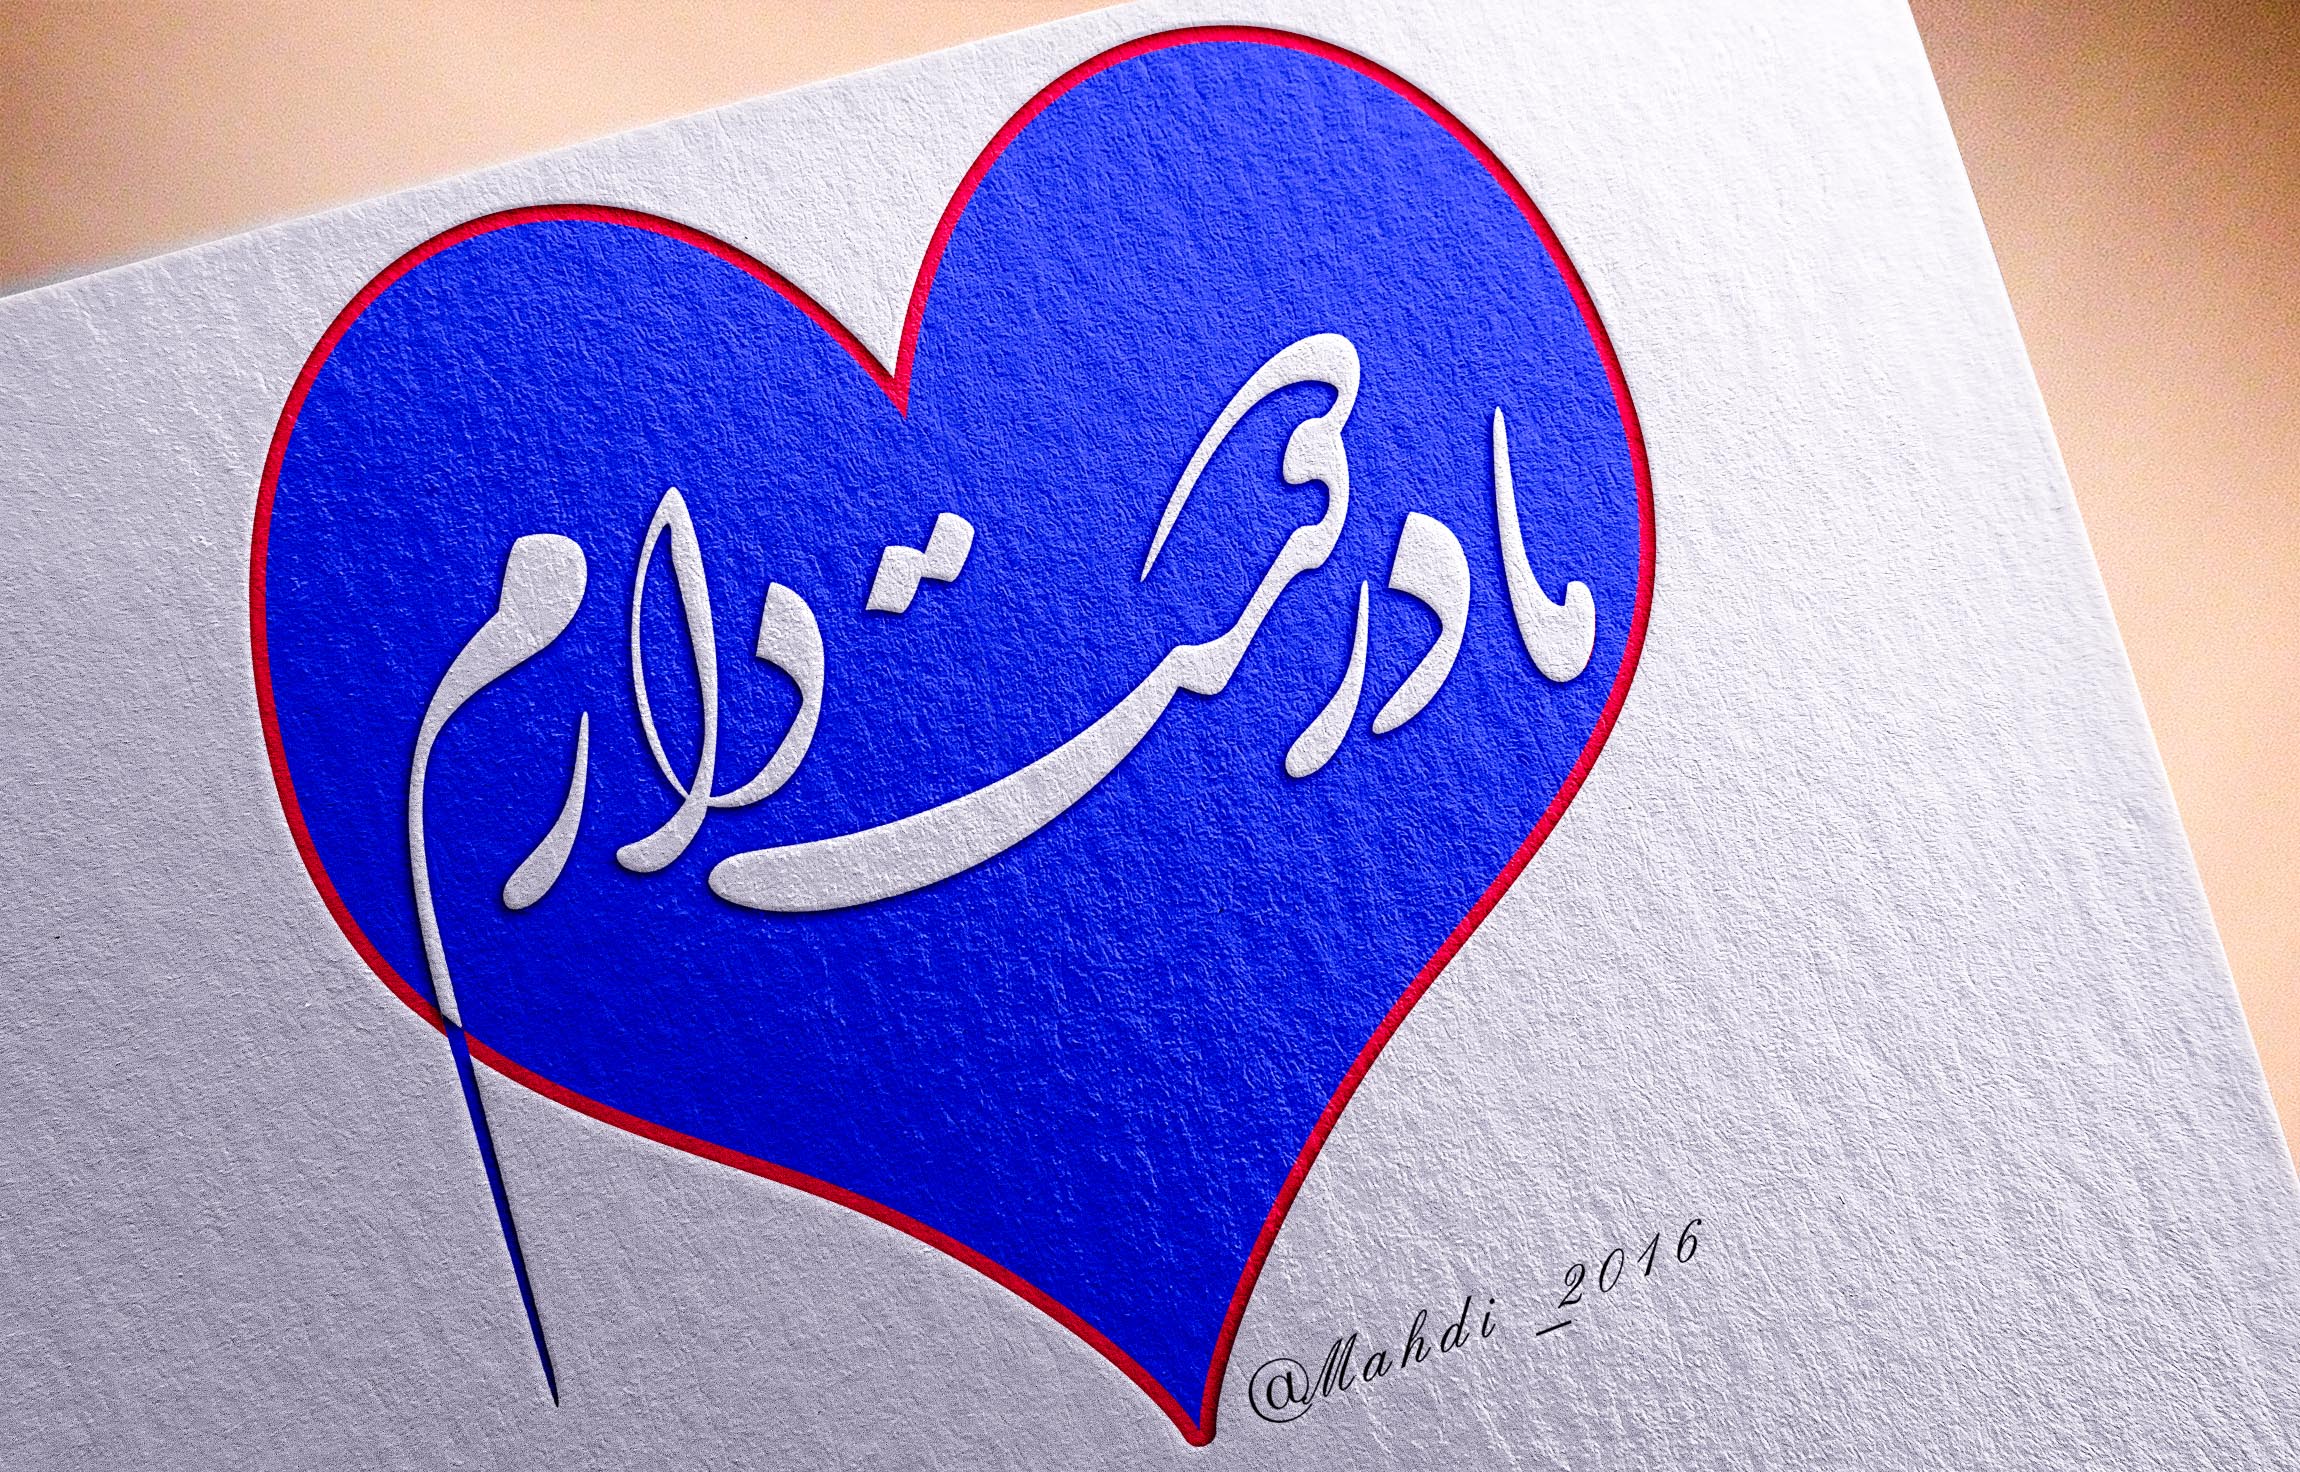 مادر دوست دارم
@Mahdi_2016